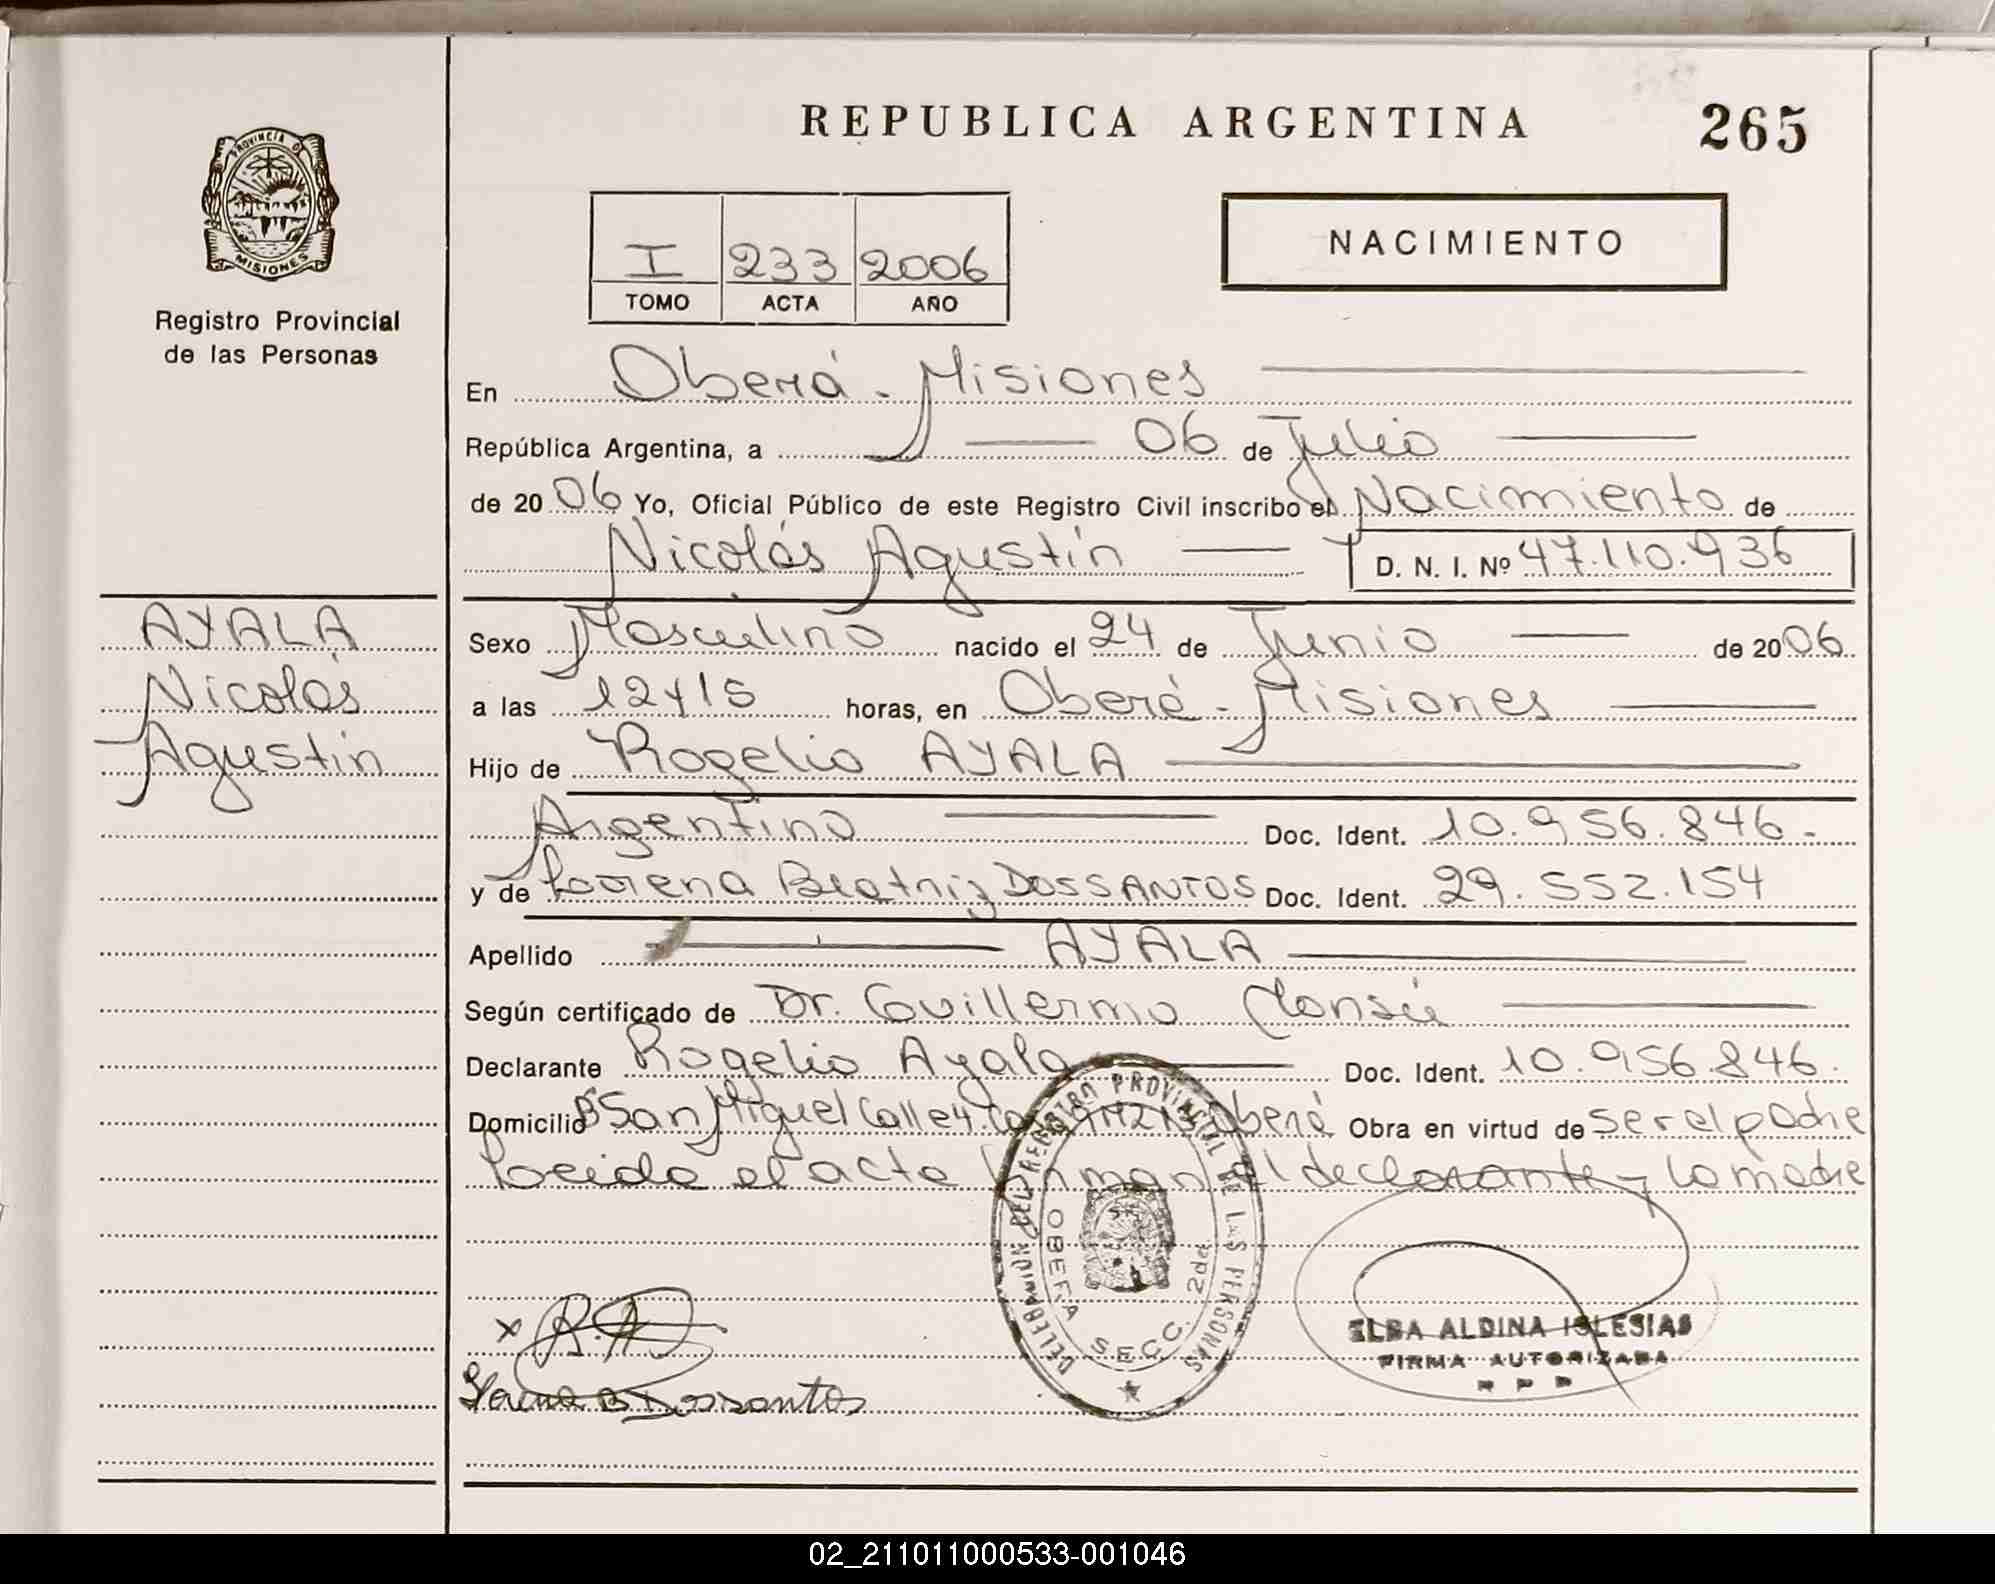 REPUBLICA ARGENTINA
265
PROVINCIA DE
MISIONES
Registro Provincial
de las Personas
NACIMIENTO
I 233 2006
TOMO ACTA AÑO
En Oberá - Misiones
República Argentina, a 06 de Julio
de 2006 Yo, Oficial Público de este Registro Civil inscribo el Nacimiento de
Nicolás Agustín D. N. I. Nº 47.110.936
AYALA
Nicolás
Agustín
Sexo Masculino nacido el 24 de Junio de 2006
a las 12y15 horas, en Oberá - Misiones
Hijo de Rogelio AYALA
Argentino Doc. Ident. 10.956.846.-
y de Lorena Beatriz DOSSANTOS Doc. Ident. 29.552.154
Apellido AYALA
Según certificado de Dr. Guillermo
Declarante Rogelio Ayala Doc. Ident. 10.956.846.
Domicilio Bº San Miguel Calle 4 Oberá Obra en virtud de ser el padre
Leida el acta firman el declarante y la madre
DELEGACION DEL REGISTRO PROVINCIAL DE LAS PERSONAS
OBERA SECC. 2da
x R.A
Lorena B Dossantos
ELBA ALDINA IGLESIAS
FIRMA AUTORIZADA
R P P
02_211011000533-001046